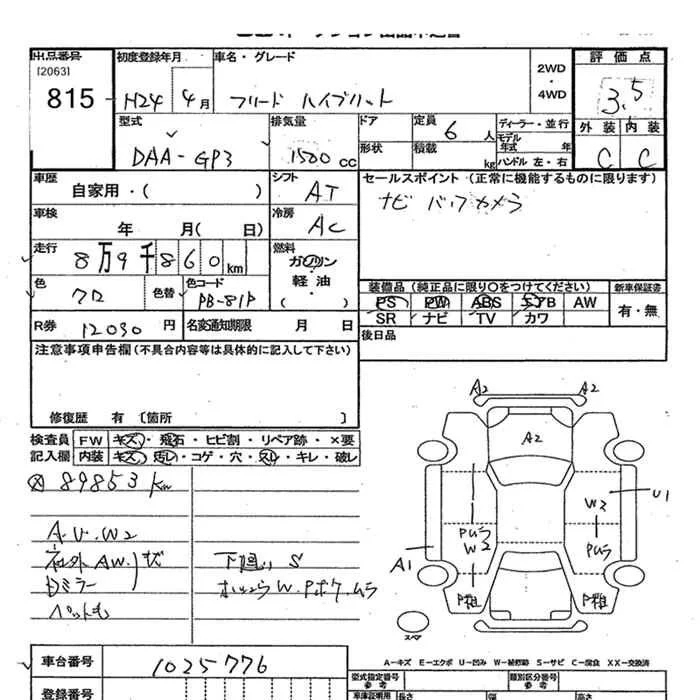 出品番号 初度登録年月 車名・グレード 2WD・4WD 評価点
[2063]
815 H24 4月 フリード ハイブリット 3.5
型式 排気量 ドア 定員 6人 ディーラー・並行 外装 内装
DAA-GP3 1500cc 形状 積載 kg モデル年式 年 C C
ハンドル 左・右
車歴 シフト セールスポイント (正常に機能するものに限ります)
自家用・( ) AT ナビ バックカメラ
車検 冷房
年 月(日) AC
走行 燃料
8万9千860km ガソリン・軽油・( )
色 色替 色コード 装備品(純正品に限り○をつけてください) 新車保証書
クロ PB-81P PS PW ABS エアB AW 有・無
R券 12030円 名変通知期限 月 日 SR ナビ TV カワ
注意事項申告欄(不具合内容等は具体的に記入して下さい) 後日品
修復歴 有 〔箇所 〕
検査員 FW キズ・飛石・ヒビ割・リペア跡・×要
記入欄 内装 キズ・汚レ・コゲ・穴・スレ・キレ・破レ
89853km
A.U.W2
社外AW.
ミラー
ペットも
下廻り S
A2 A2
A2
W2 U1
Pムラ W2 Pムラ
A1
P粗 P粗
スペア
A-キズ E-エクボ U-凹み W-補修跡 S-サビ C-腐食 XX-交換済
車台番号 1025776 型式指定番号 参考 類別区分番号 参考
登録番号 車庫証明用 参考 長さ 幅 高さ